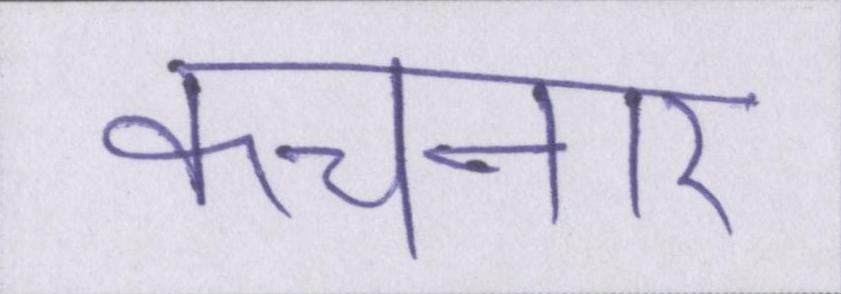 कचनार